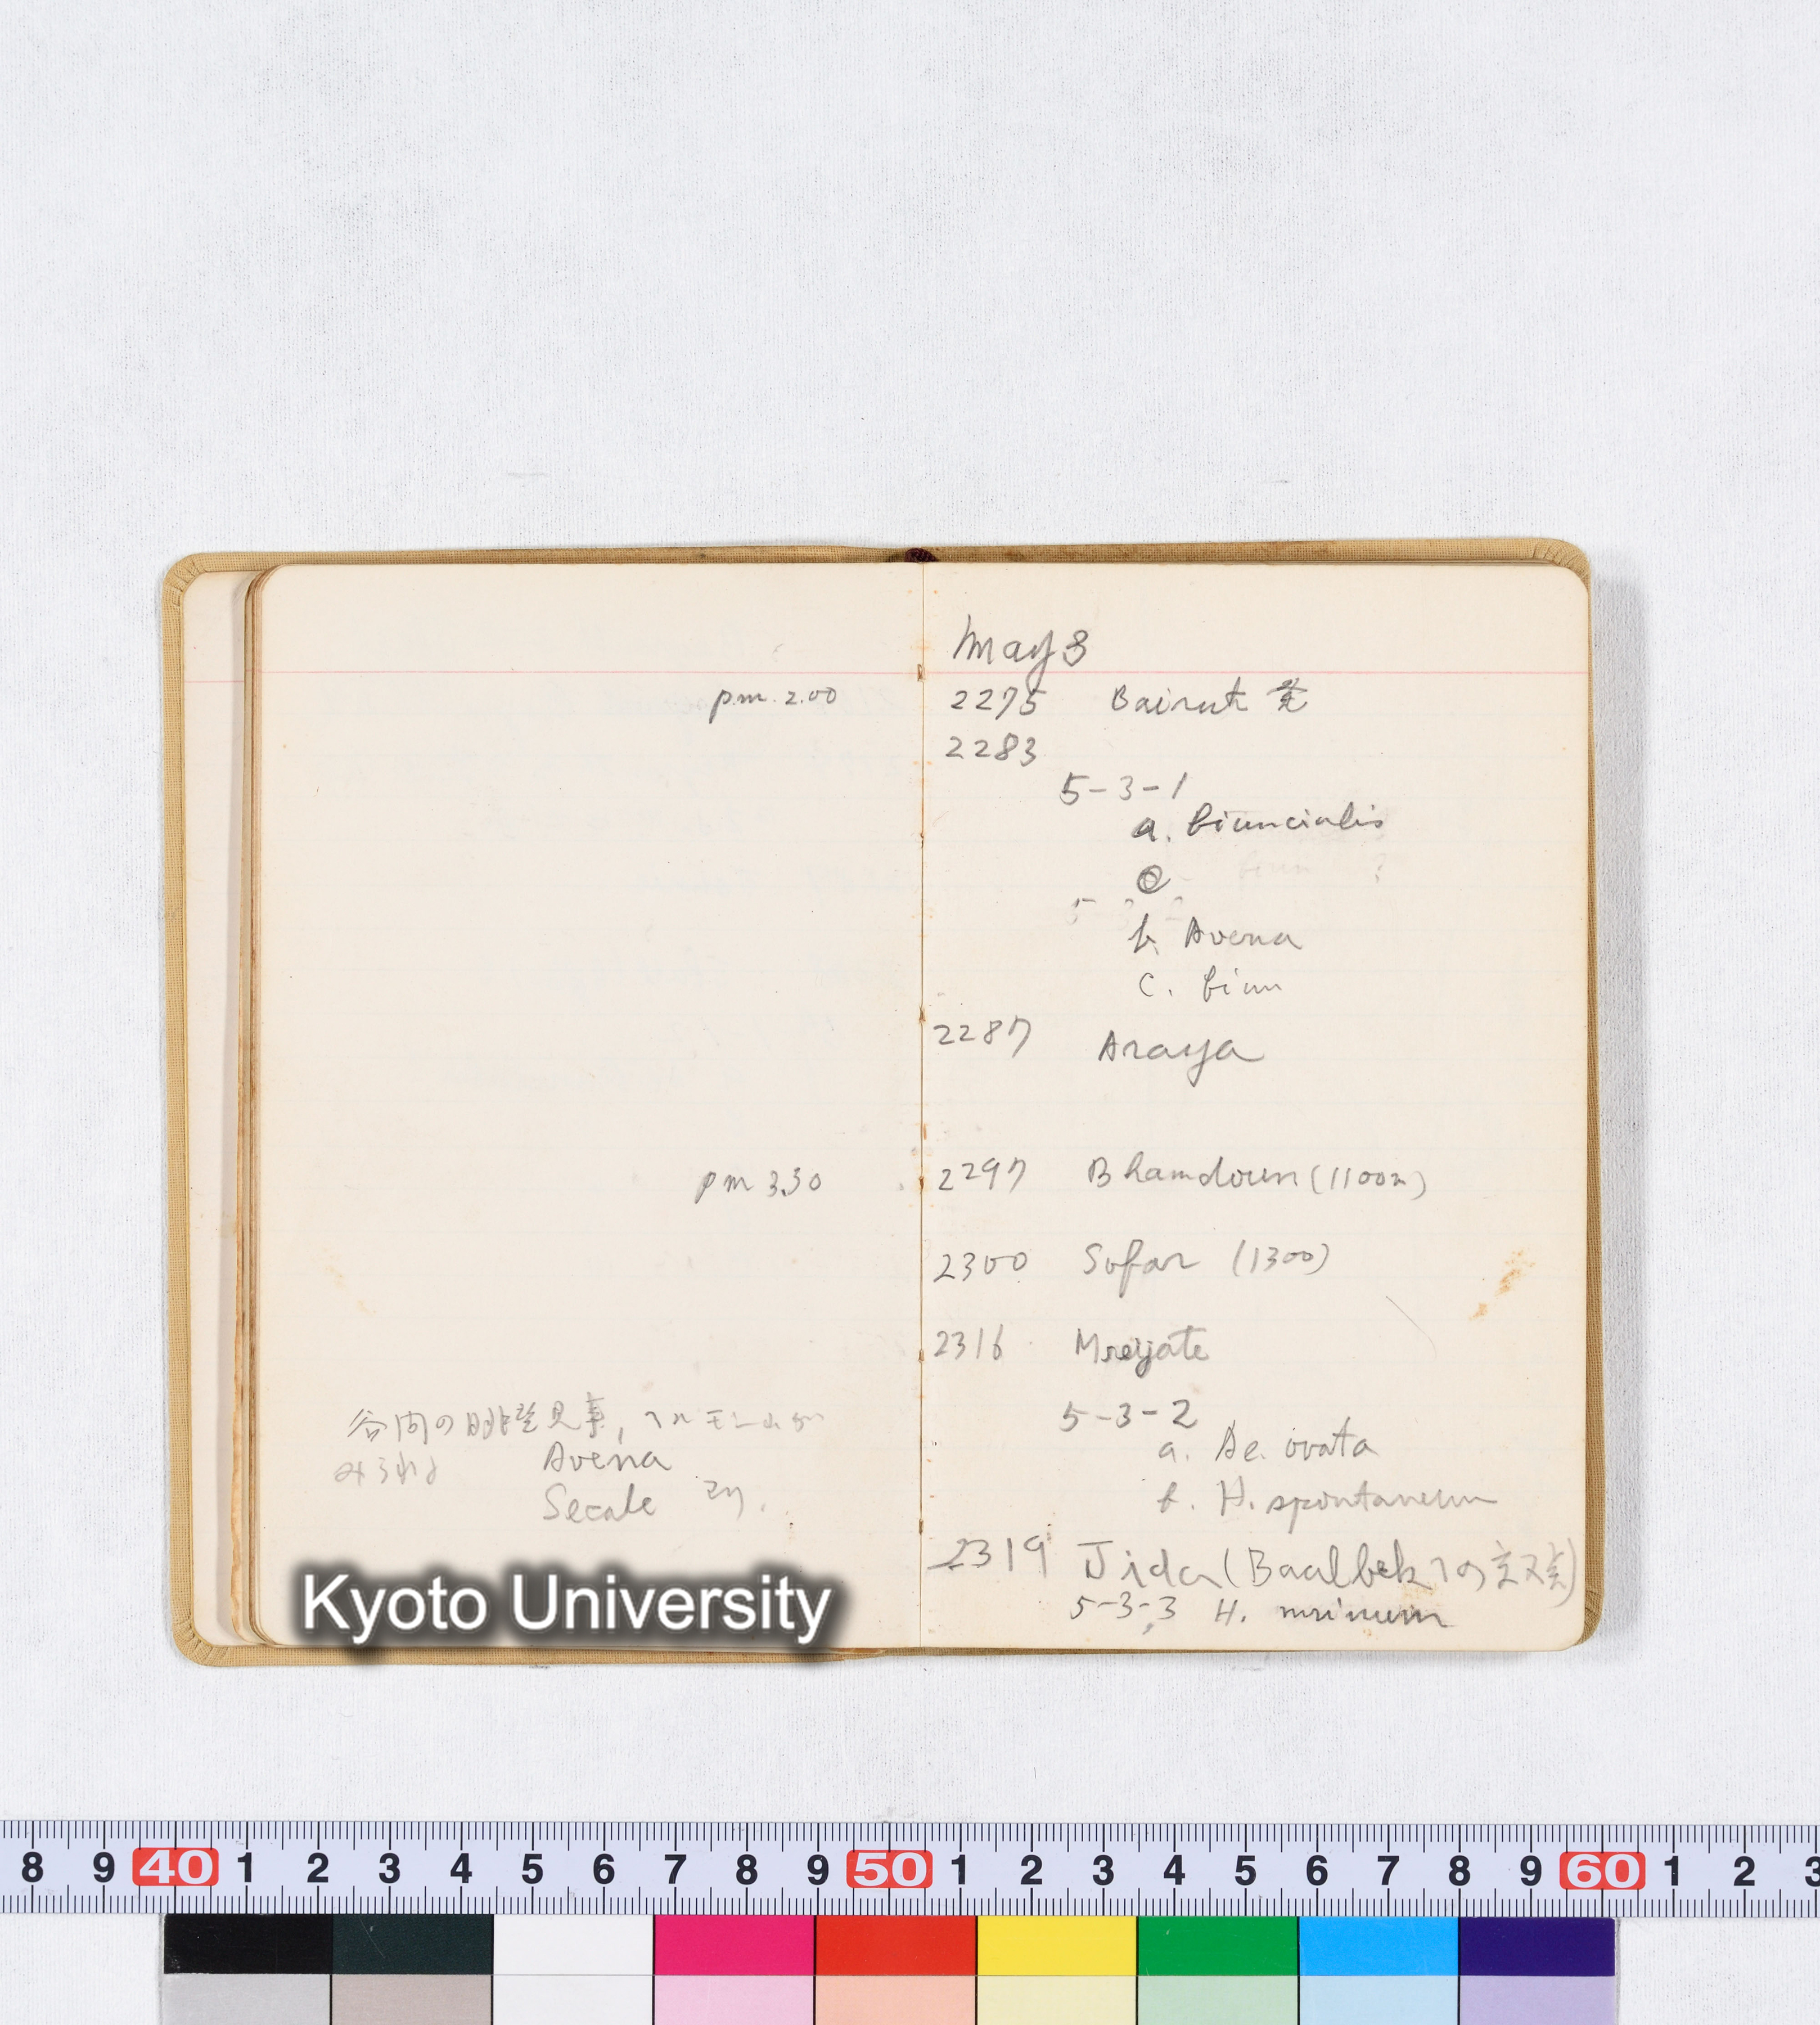 pm. 2.00
pm 3.30
谷間の眺望見事, ヘルモン山が
みられる
Avena
Secale
May 3
2275 Bairut 発
2283
5-3-1
a. biuncialis
b. Avena
c. biun
2287 Araya
2297 Bhamdoun (1100m)
2300 Sofar (1300)
2316 Mreijate
5-3-2
a. Ae. ovata
b. H. spontaneum
2319 Jida (Baalbekへの
5-3-3 H. murinum
Kyoto University
8 9 40 1 2 3 4 5 6 7 8 9 50 1 2 3 4 5 6 7 8 9 60 1 2 3